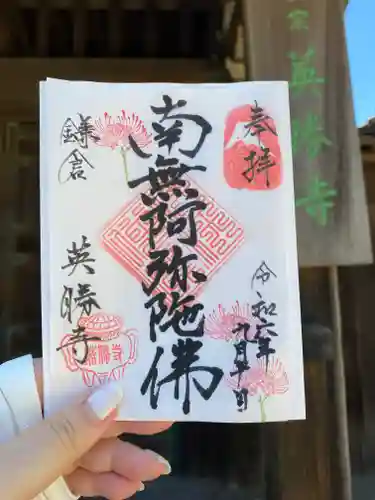 奉拝
令和六年
九月廿日
南無阿弥陀佛
鎌倉
英勝寺
英勝寺